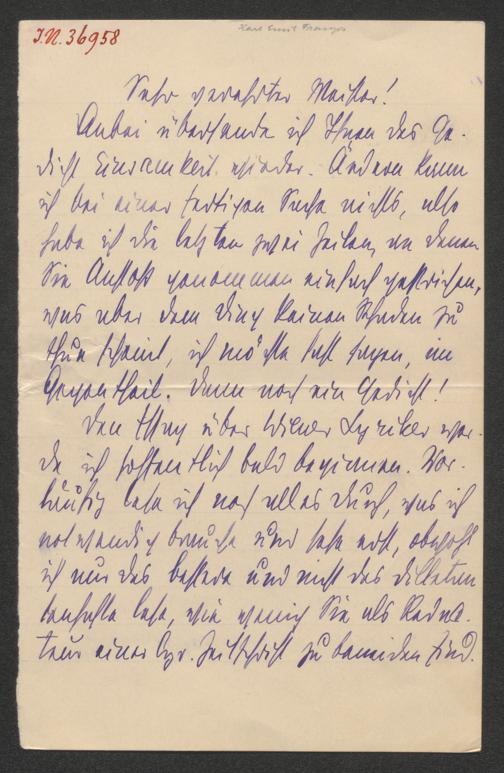 I.N. 36958
Karl Emil Franzos
Sehr verehrter Meister!
Anbei übersende ich Ihnen das Ge-
dicht Einsamkeit wieder. Ändern kann
ich bei einer fertigen Sache nichts, also
habe ich die letzten zwei Zeilen, an denen
Sie Anstoß genommen einfach gestrichen,
was aber dem Ding keinen Schaden zu
thun scheint, ich möchte fast sagen, im
Gegentheil. Denn noch ein Gedicht!
Den Essay über Wiener Lyriker wer-
de ich hoffentlich bald beginnen. Vor-
läufig lese ich noch alles durch, was ich
notwendig brauche und sehe erst, obwohl
ich nur das bessere und nicht das dilettan
tenhafte lese, wie wenig Sie als Redac-
teur einer lyr. Zeitschrift zu beneiden sind.